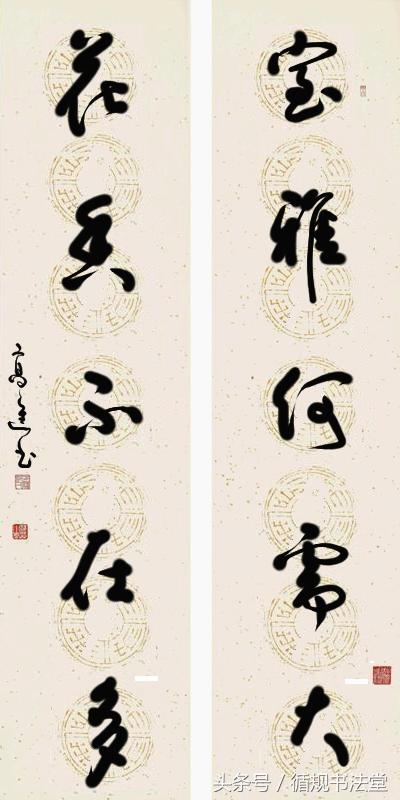 室雅何需大
花香不在多
高
书
头条号 / 循规书法堂